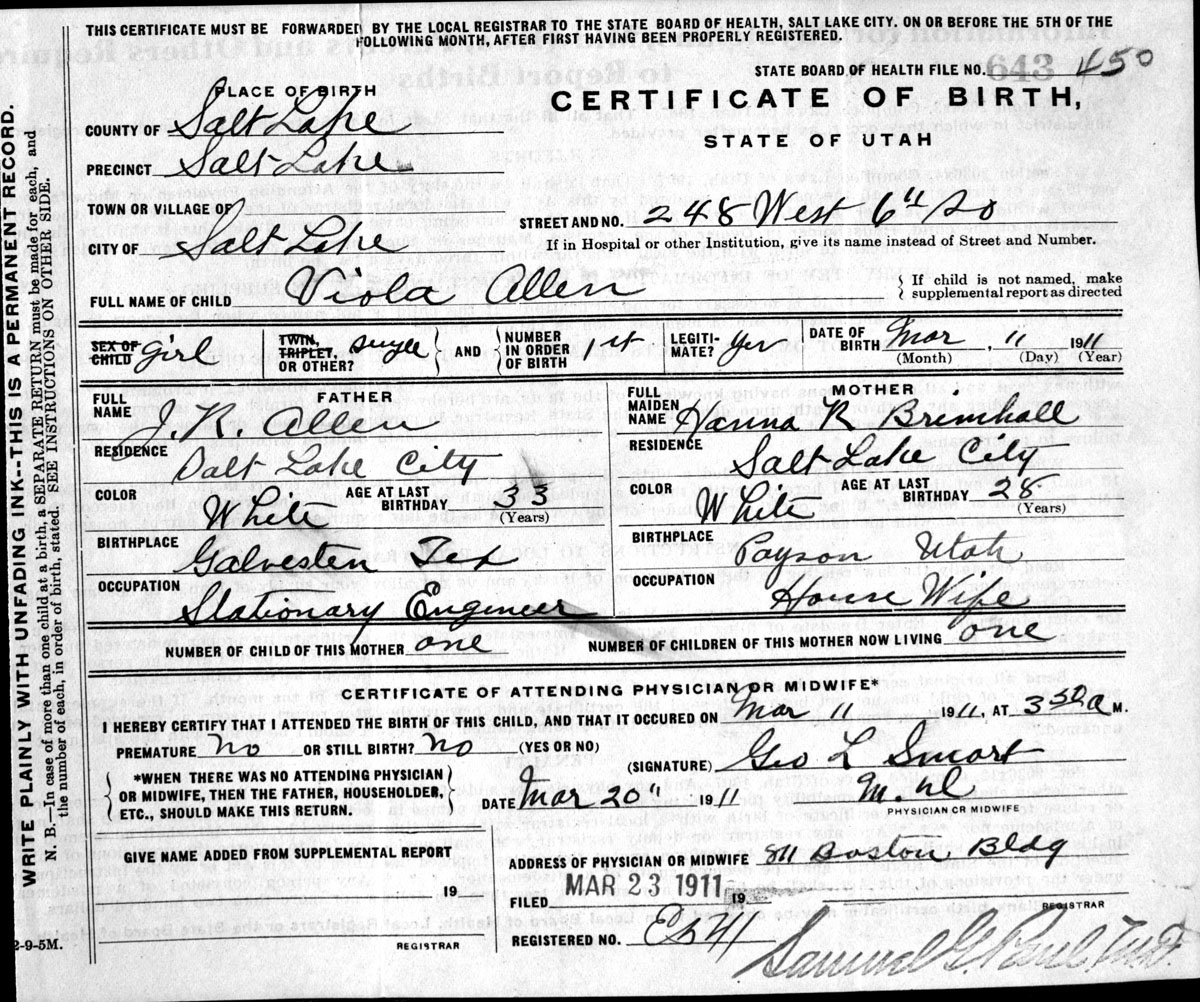 THIS CERTIFICATE MUST BE FORWARDED BY THE LOCAL REGISTRAR TO THE STATE BOARD OF HEALTH, SALT LAKE CITY, ON OR BEFORE THE 5TH OF THE
FOLLOWING MONTH, AFTER FIRST HAVING BEEN PROPERLY REGISTERED.
STATE BOARD OF HEALTH FILE NO. 643 450
PLACE OF BIRTH
CERTIFICATE OF BIRTH,
COUNTY OF Salt Lake
STATE OF UTAH
PRECINCT Salt Lake
TOWN OR VILLAGE OF
STREET AND NO. 248 West 6th So
CITY OF Salt Lake
If in Hospital or other Institution, give its name instead of Street and Number.
FULL NAME OF CHILD Viola Allen
If child is not named, make
supplemental report as directed
SEX OF CHILD girl
TWIN, TRIPLET, OR OTHER? single
AND NUMBER IN ORDER OF BIRTH 1st
LEGITI-MATE? yes
DATE OF BIRTH Mar, 11 1911
(Month) (Day) (Year)
FATHER
FULL NAME J. R. Allen
RESIDENCE Salt Lake City
COLOR White
AGE AT LAST BIRTHDAY 33 (Years)
BIRTHPLACE Galvesten Tex
OCCUPATION Stationary Engineer
MOTHER
FULL MAIDEN NAME Hanna R Brimhall
RESIDENCE Salt Lake City
COLOR White
AGE AT LAST BIRTHDAY 28 (Years)
BIRTHPLACE Payson Utah
OCCUPATION House Wife
NUMBER OF CHILD OF THIS MOTHER one
NUMBER OF CHILDREN OF THIS MOTHER NOW LIVING one
CERTIFICATE OF ATTENDING PHYSICIAN OR MIDWIFE*
I HEREBY CERTIFY THAT I ATTENDED THE BIRTH OF THIS CHILD, AND THAT IT OCCURED ON Mar 11 1911, AT 3 30 a M.
PREMATURE No OR STILL BIRTH? No (YES OR NO)
(SIGNATURE) Geo L Smart
*WHEN THERE WAS NO ATTENDING PHYSICIAN
OR MIDWIFE, THEN THE FATHER, HOUSEHOLDER,
ETC., SHOULD MAKE THIS RETURN.
DATE Mar 20" 1911 M.D.
PHYSICIAN OR MIDWIFE
GIVE NAME ADDED FROM SUPPLEMENTAL REPORT
19
REGISTRAR
ADDRESS OF PHYSICIAN OR MIDWIFE 811 Boston Bldg
FILED MAR 23 1911 19
REGISTRAR
REGISTERED NO. E541
Samuel G. Paul, M.D.
WRITE PLAINLY WITH UNFADING INK--THIS IS A PERMANENT RECORD.
N. B.—In case of more than one child at a birth, a SEPARATE RETURN must be made for each, and
the number of each, in order of birth, stated. SEE INSTRUCTIONS ON OTHER SIDE.
2-9-5M.